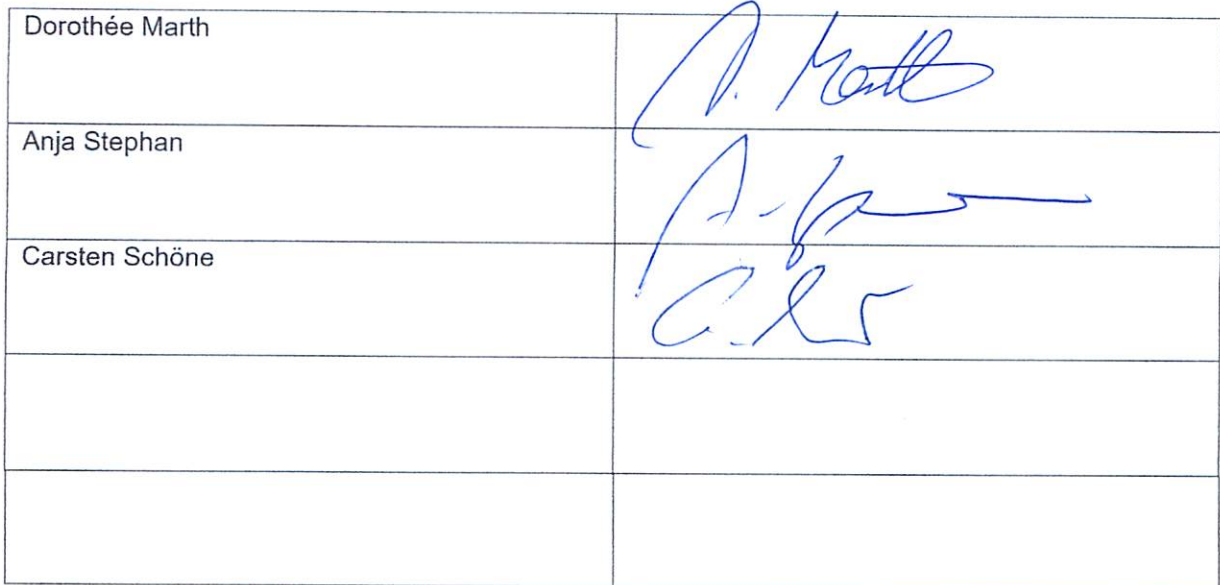 Dorothée Marth
D. Marth
Anja Stephan
Carsten Schöne